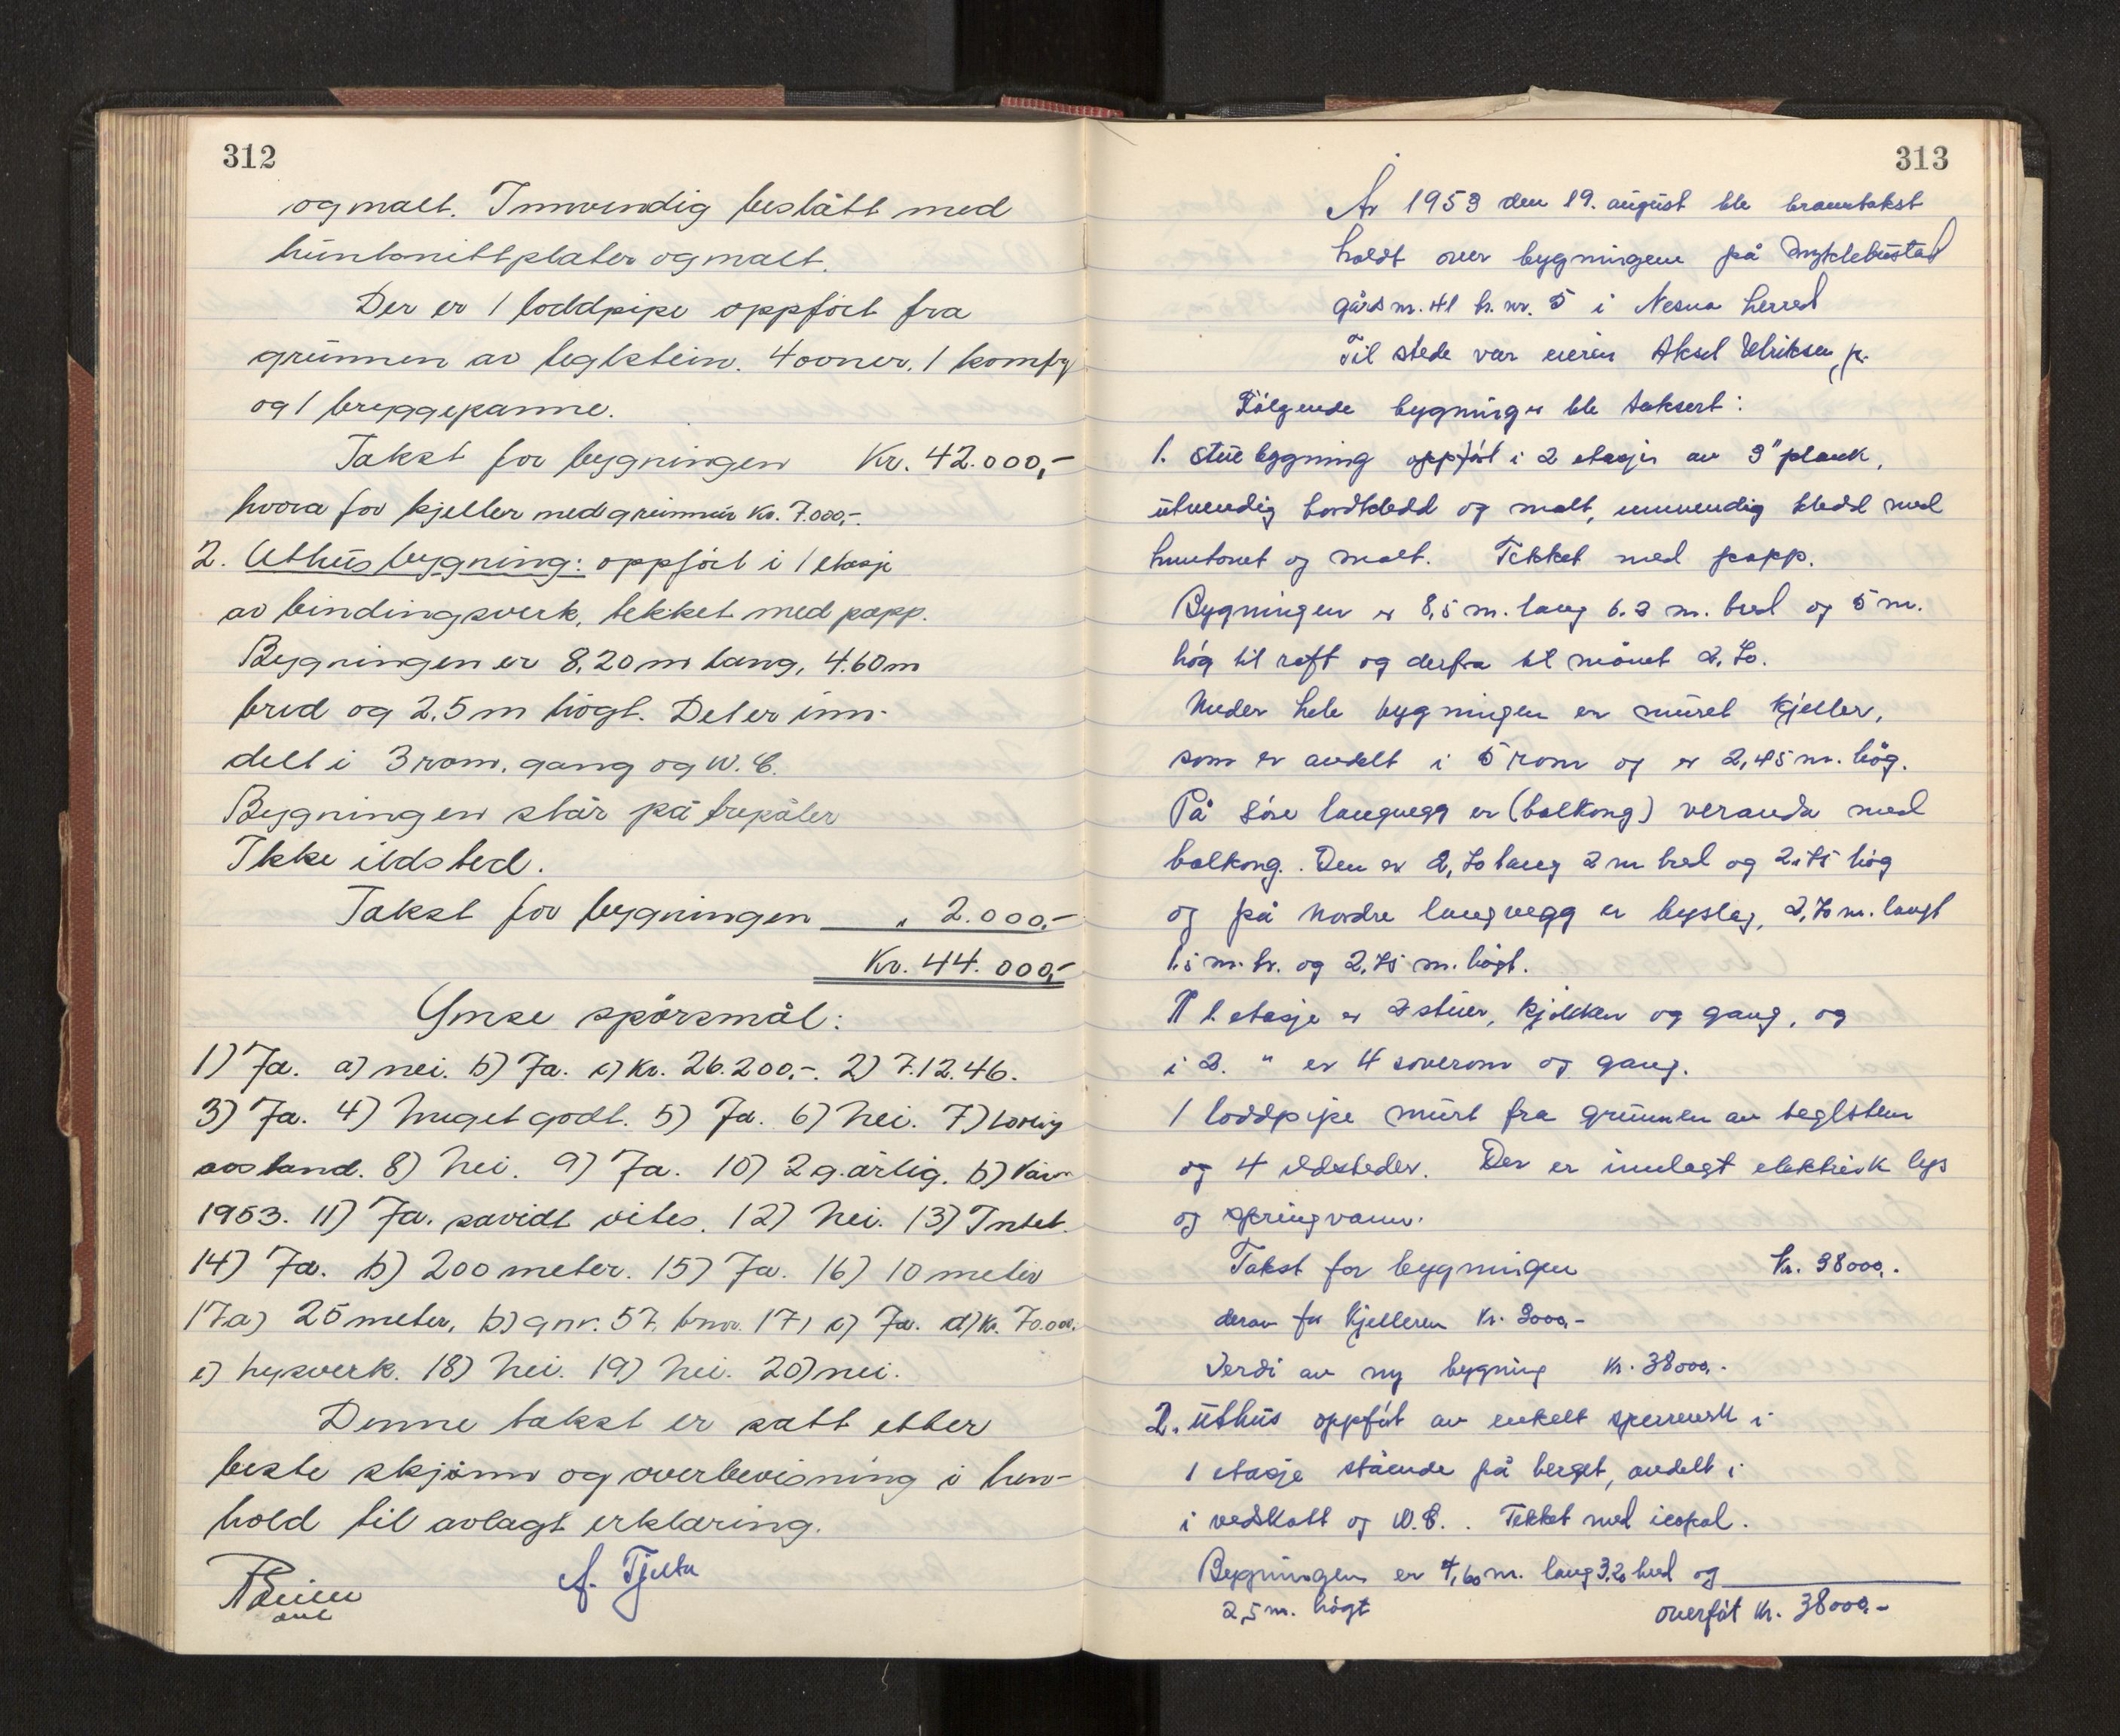 312
og malt. Innvendig beslått med
huntonittplater og malt.
Der er 1 loddpipe oppfört fra
grunnen av teglstein. 4 ovner, 1 komfy
og 1 bryggepanne.
Takst for bygningen Kr. 42.000,-
hvora for kjeller med grunnmur Kr. 7.000,-.
2. Uthusbygning: oppfört i 1 etasje
av bindingsverk, tekket med papp.
Bygningen er 8,20 m lang, 4.60 m
bred og 2,5 m högt. Det er inn-
delt i 3 rom, gang og W.C.
Bygningen står på trepåler
Ikke ildsted.
Takst for bygningen " 2.000,-
Kr. 44.000,-
Ymse spörsmål:
1) Ja. a) nei. b) Ja. c) Kr. 26.200,-. 2) 7.12.46.
3) Ja. 4) Meget godt. 5) Ja. 6) Nei. 7) Lovlig
avstand. 8) Nei. 9) Ja. 10) 2 g. årlig. b) Vår
1953. 11) Ja. savidt vites. 12) Nei. 13) Intet.
14) Ja. b) 200 meter. 15) Ja. 16) 10 meter
17a) 25 meter, b) gnr. 57, bnr. 17, c) Ja. d) Kr. 70.000.
e) trykverk. 18) Nei. 19) Nei. 20) nei.
Denne takst er satt etter
beste skjönn og overbevisning i hen-
hold til avlagt erklæring.
A. Tjelta
313
År 1953 den 19. august ble branntakst
holdt over bygningene på Myklebustad
gårds nr. 41 br. nr. 5 i Nesna herred
Til stede var eieren Aksel Ulriksen, jr.
Fölgende bygninger ble taksert:
1. Stuebygning oppfört i 2 etasjer av 3" plank,
utvendig bordkledd og malt, innvendig kledd med
huntonet og malt. Tekket med papp.
Bygningen er 8,5 m. lang 6.3 m. bred og 5 m.
hög til raft og derfra til mönet 2,70.
Under hele bygningen er muret kjeller,
som er avdelt i 5 rom og er 2,45 m. hög.
På söre langvegg er (balkong) veranda med
balkong. Den er 2,70 lang 2 m bred og 2,75 hög
og på nordre langvegg er byslag, 2,70 m. langt
1.5 m. br. og 2,75 m. högt.
I 1. etasje er 2 stuer, kjökken og gang, og
i 2. " er 4 soverom og gang.
1 loddpipe murt fra grunnen av teglsten
og 4 ildsteder. Der er innlagt elektrisk lys
og springvann.
Takst for bygningen Kr. 38000,-
derav for kjelleren Kr. 3000,-
Verdi av ny bygning Kr. 38000,-
2. Uthus oppfört av enkelt sperreverk i
1 etasje stående på berget, avdelt i
i vedskott og W.C.. Tekket med icopal.
Bygningen er 4,60 m. lang 3,20 bred og
2,5 m. högt overfört Kr. 38000,-